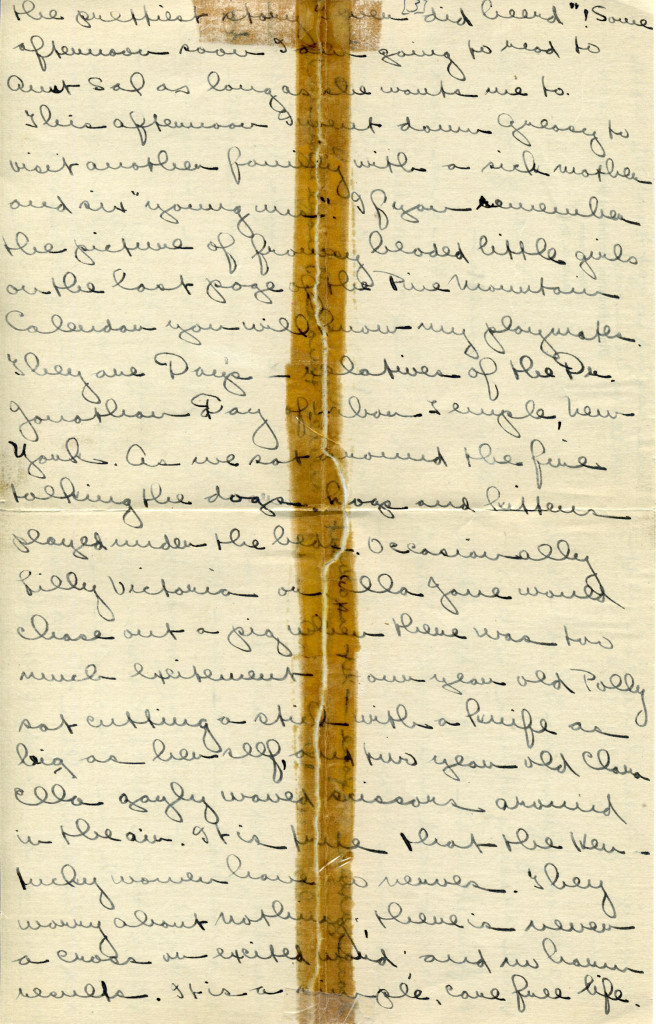 the prettiest story "I ever did heerd"! Some
[3]
afternoon soon I am going to read to
Aunt Sal as long as she wants me to.
This afternoon I went down Greasy to
visit another family with a sick mother
and six "young uns". If you remember
the picture of frowsy headed little girls
on the last page of the Pine Mountain
Calendar you will know my playmates.
They are Days — relatives of the Dr.
Jonathan Day of Labor Temple, New
York. As we sat around the fire
talking the dogs, hogs and kittens
played under the beds. Occasionally
Lilly Victoria or Ella Jane would
chase out a pig when there was too
much excitement one year old Polly
sat cutting a stick with a knife as
big as herself, and two year old Clara
Ella gayly waved scissors around
in the air. It is true that the Ken-
tucky women have no nerves. They
worry about nothing; there is never
a cross or excited word and no harm
results. It is a simple, care free life.